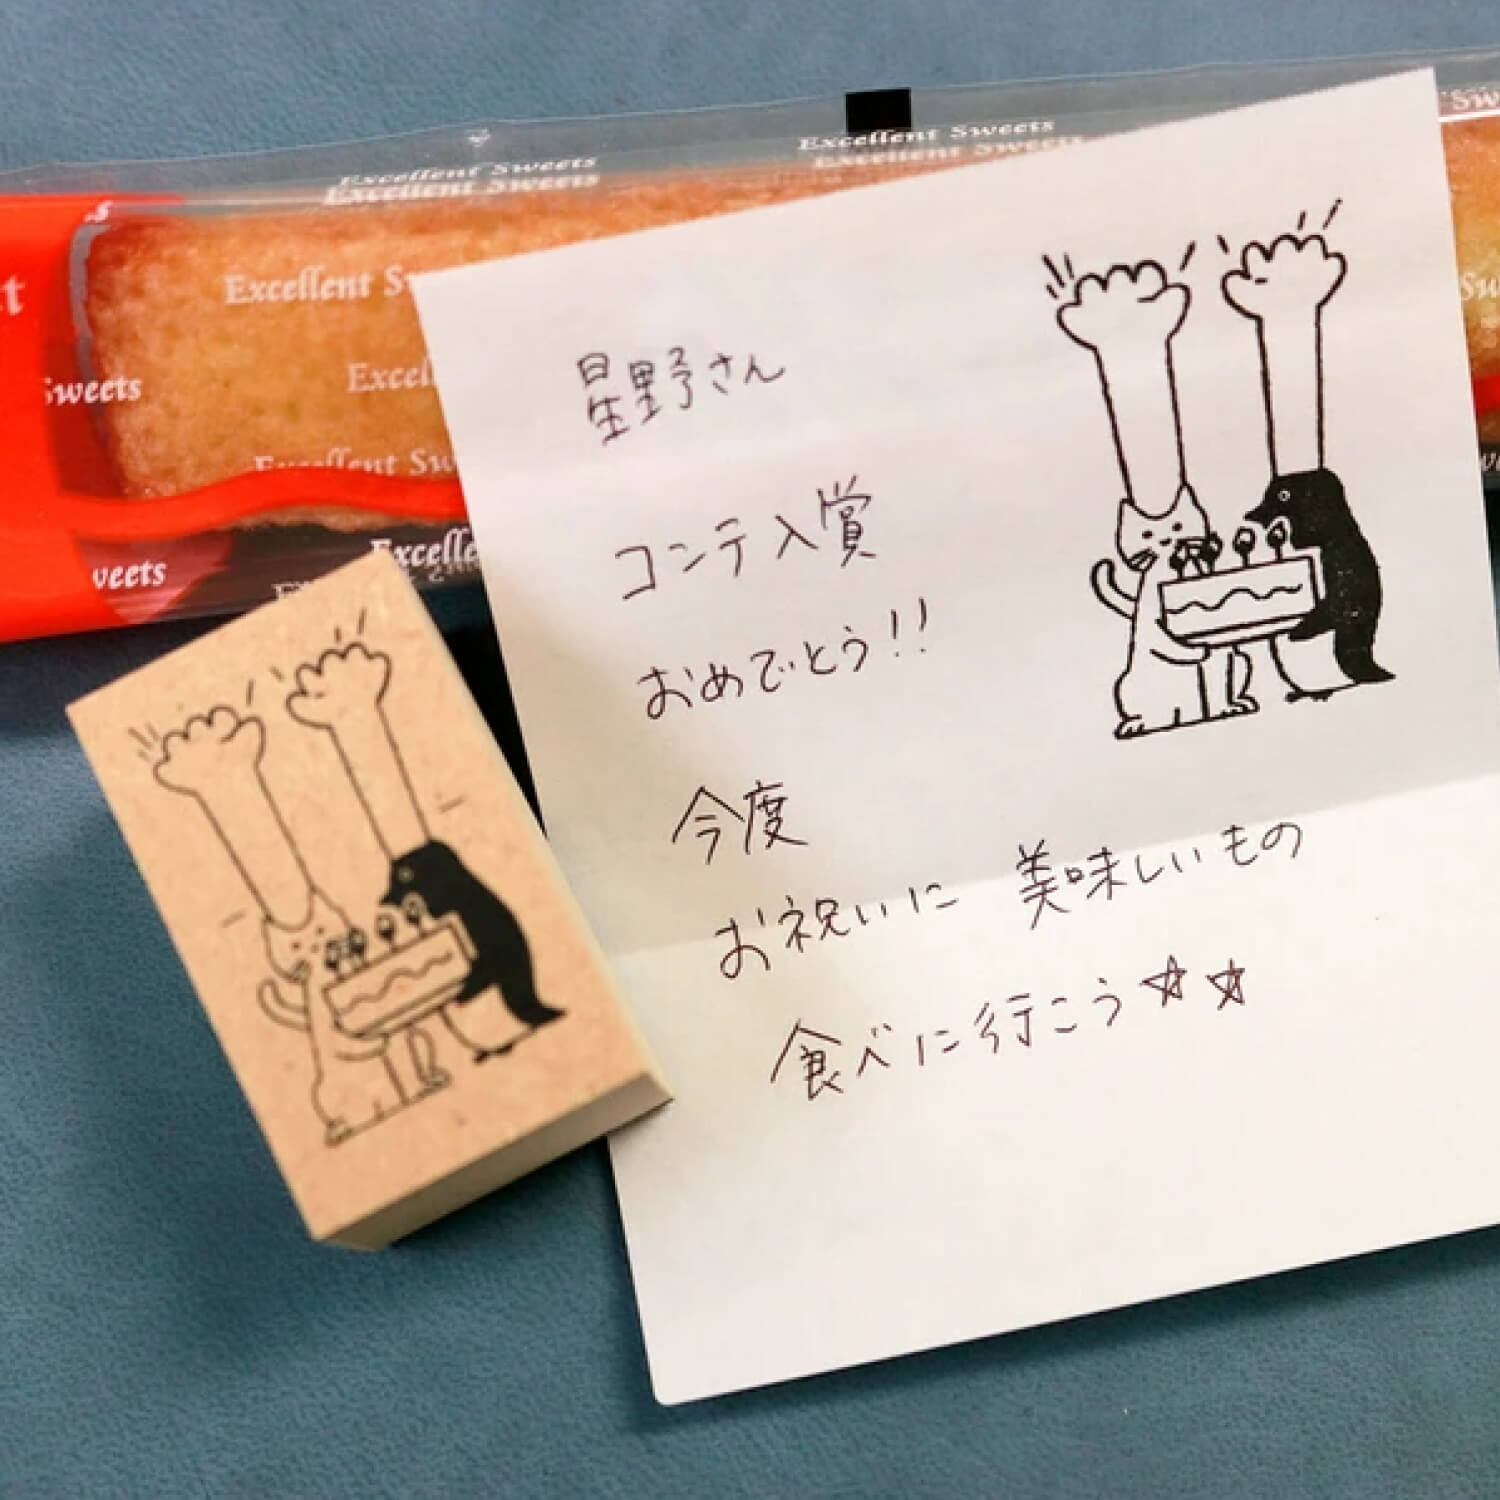 Excellent Sweets
Excellent Sweets
Excellent Sweets
Excellent Sweets
Excellent
Sweets
Excellent
sweets
星野さん
コンテ入賞
おめでとう!!
今度
お祝いに 美味しいもの
食べに行こう☆☆